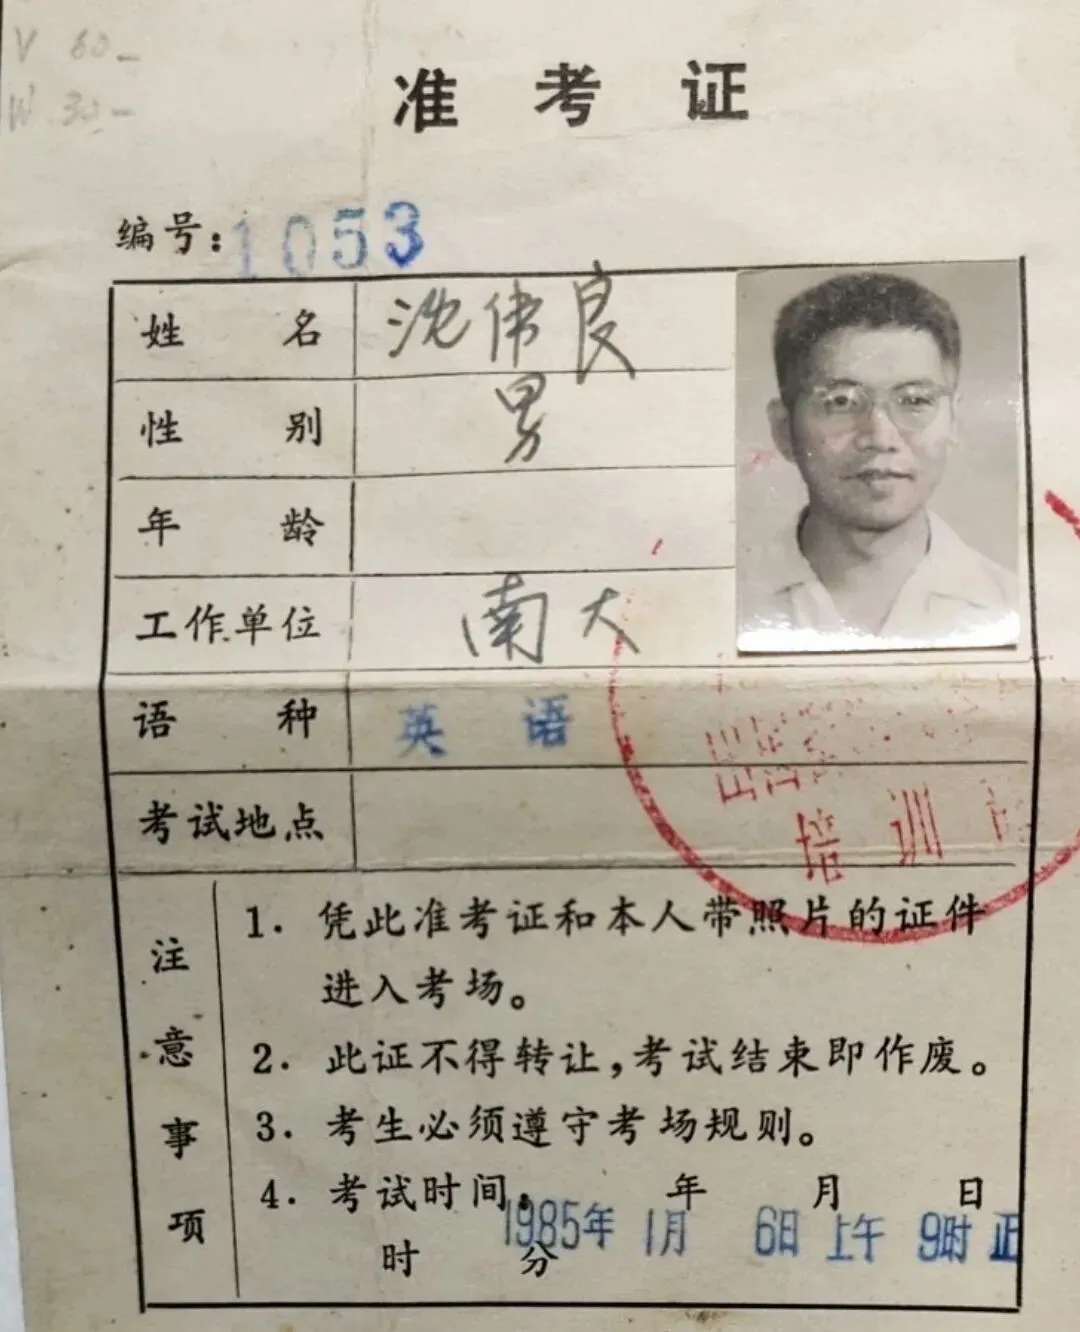 V 60-
W 30-
准考证
编号:1053
姓名 沈伟良
性别 男
年龄
工作单位 南大
语种 英语
考试地点
培训
注意事项
1. 凭此准考证和本人带照片的证件
进入考场。
2. 此证不得转让,考试结束即作废。
3. 考生必须遵守考场规则。
4. 考试时间: 年 月 日
1985年 1月 6日 上午 9时正
时 分